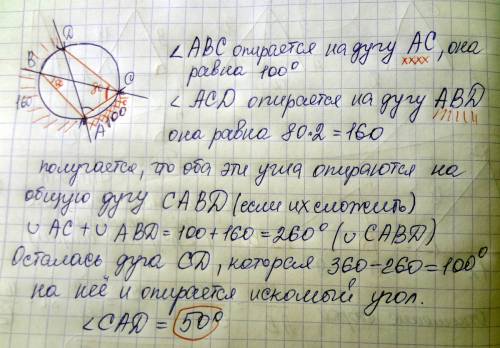 D
B
50
80
C
160
A
100
∠ABC опирается на дугу AC, она
равна 100°
∠ACD опирается на дугу ABD
она равна 80·2=160
получается, что оба эти угла опираются на
общую дугу CABD (если их сложить)
∪AC+∪ABD=100+160=260° (∪CABD)
Осталась дуга CD, которая 360-260=100°
на неё и опирается искомый угол.
∠CAD = 50°